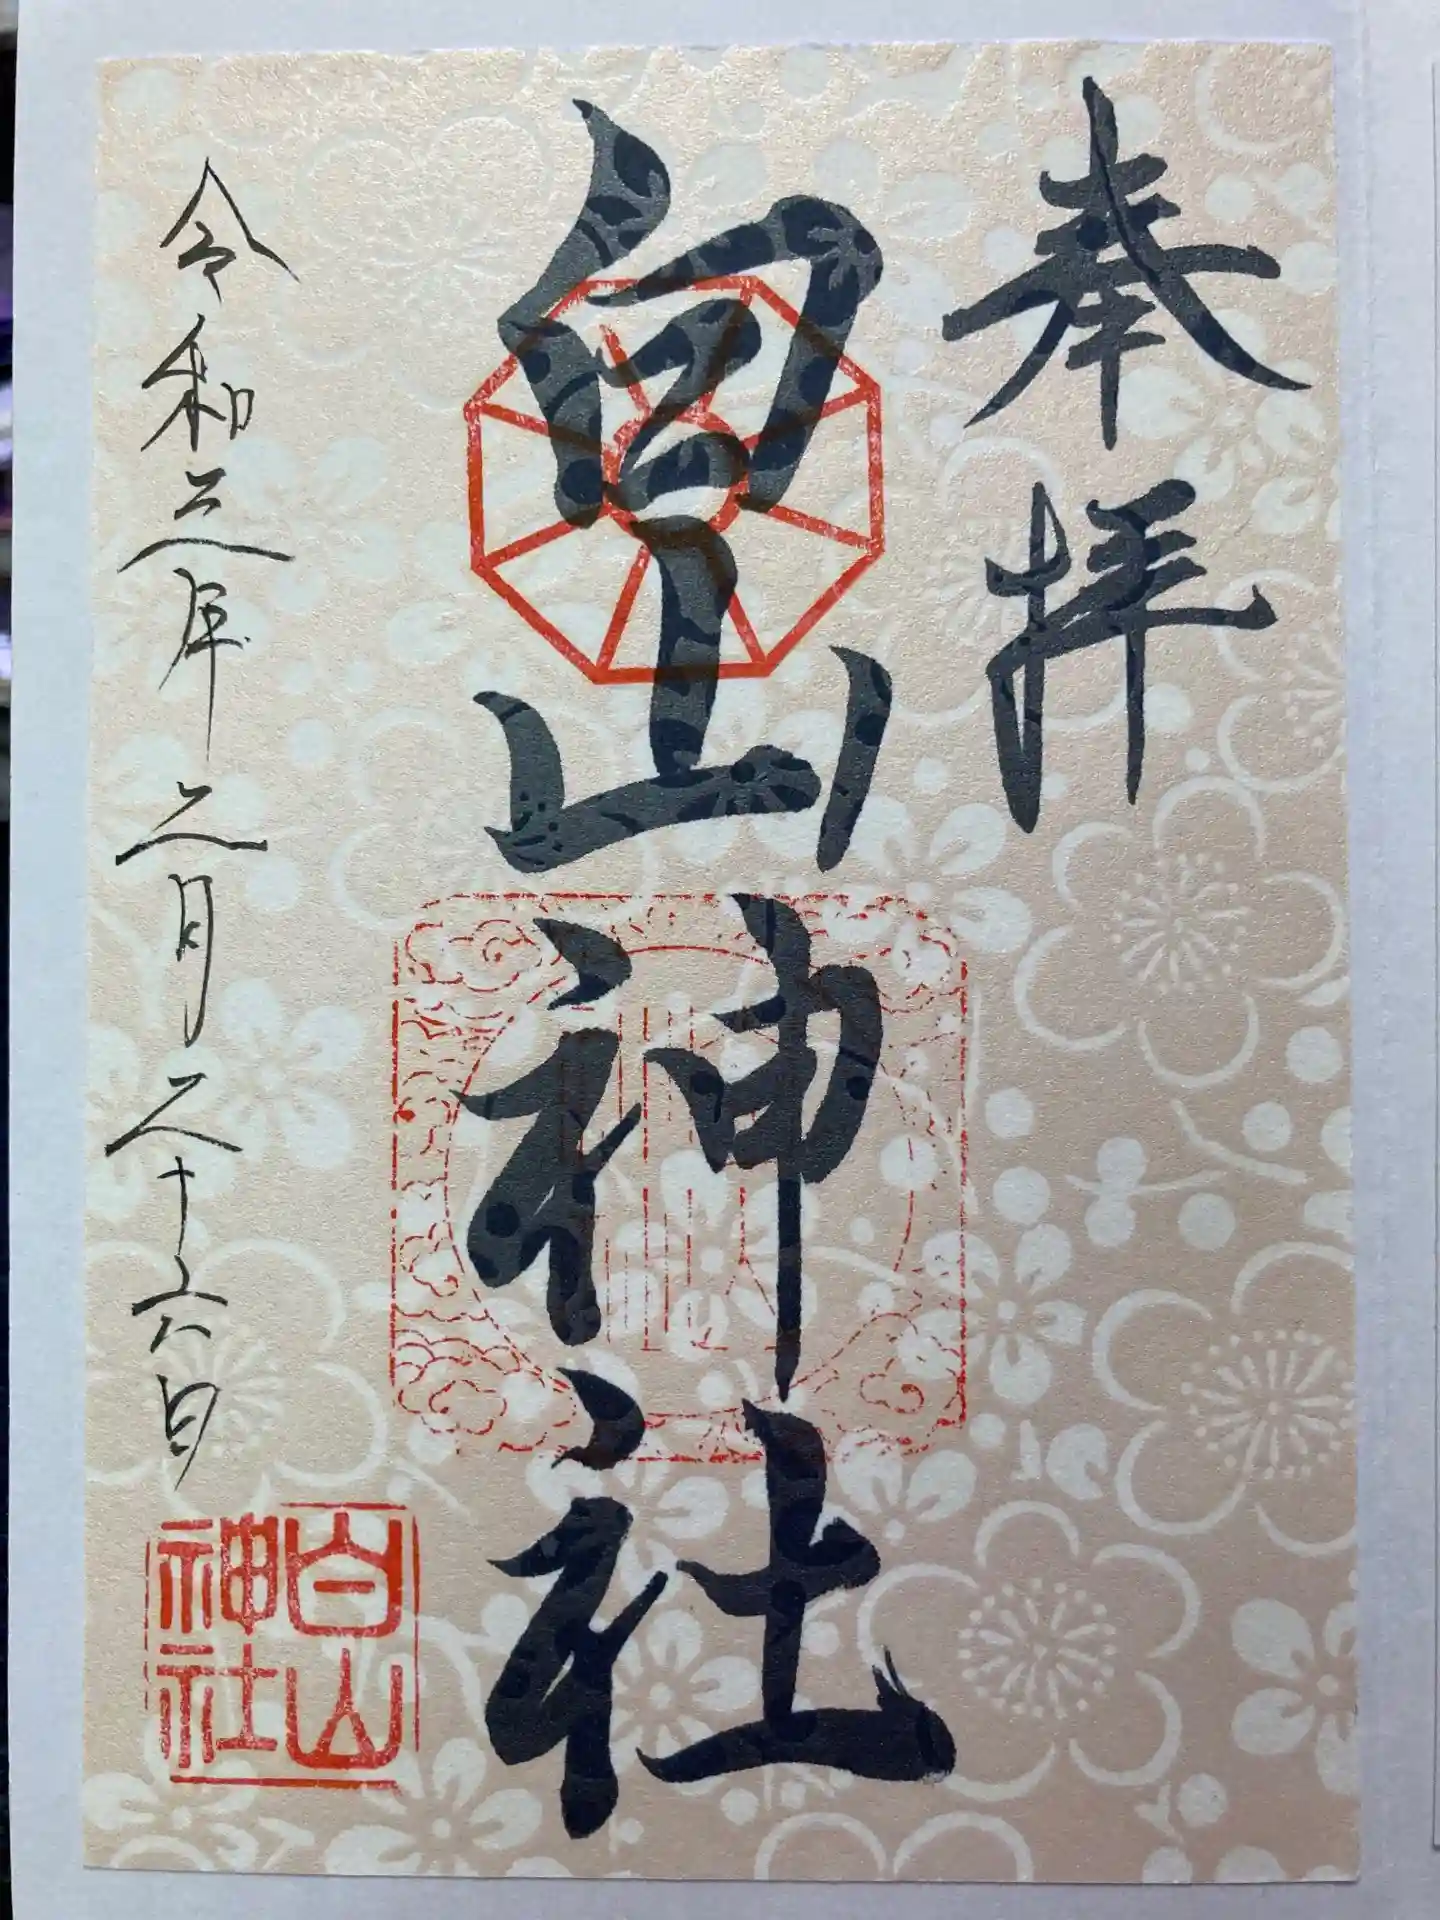 奉拝
白山神社
令和三年二月二十六日
白山
神社